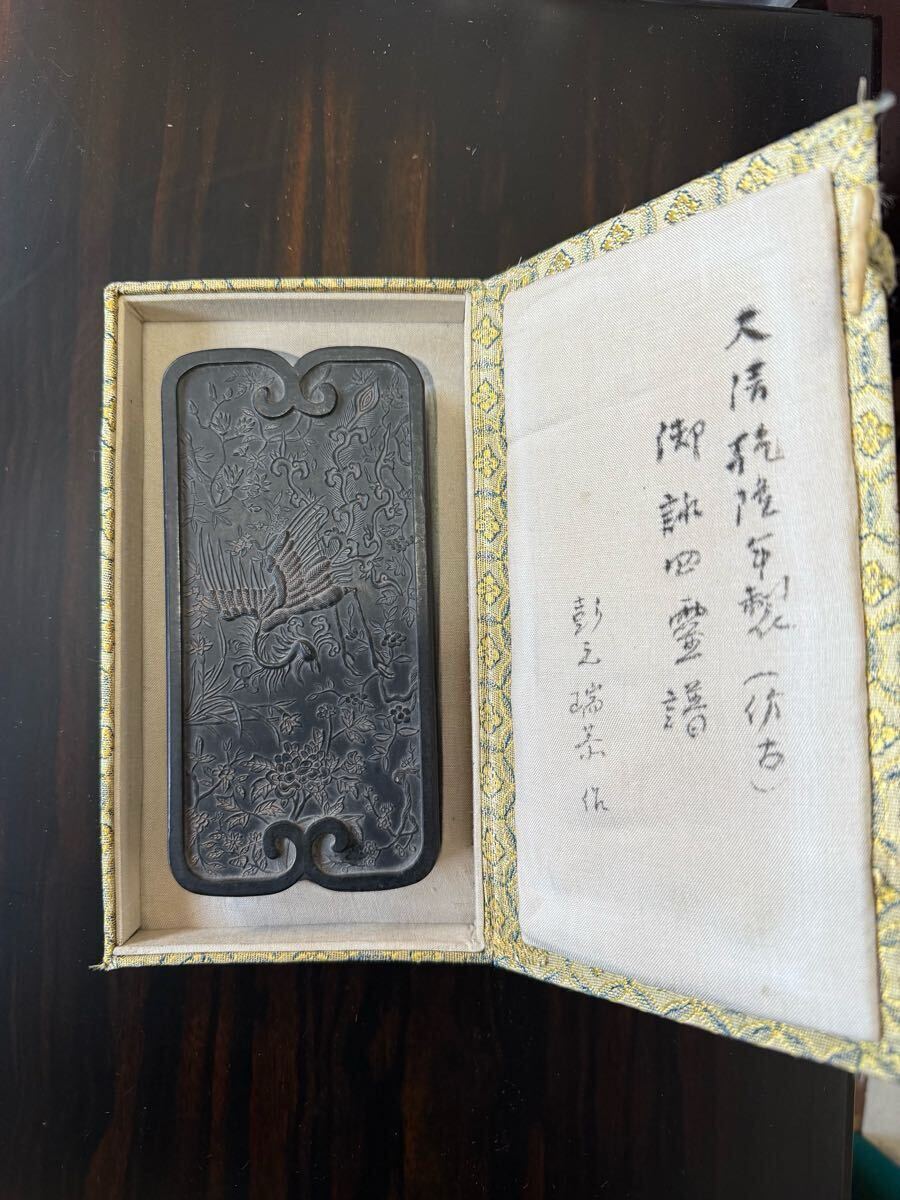 大清乾隆年製（仿古）
御詠四靈譜
彭元瑞恭作